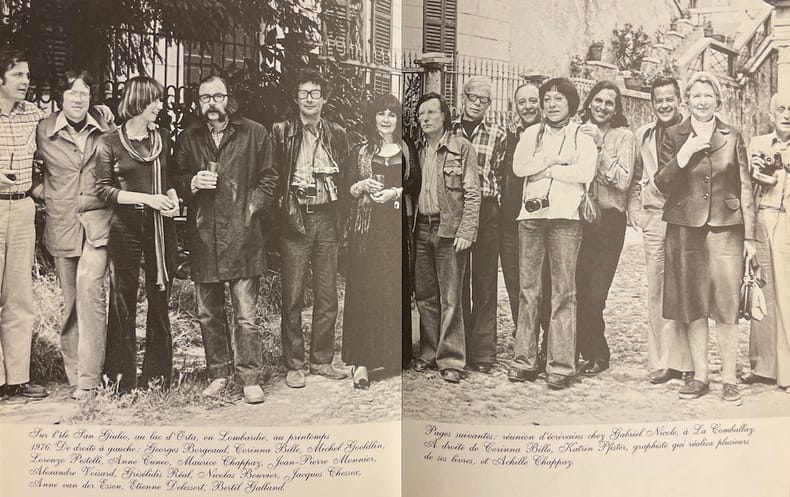 Sur l'île San Giulio, au lac d'Orta, en Lombardie, au printemps
1976. De droite à gauche: Georges Borgeaud, Corinna Bille, Michel Goeldlin,
Lorenzo Pestelli, Anne Cuneo, Maurice Chappaz, Jean-Pierre Monnier,
Alexandre Voisard, Grisélidis Réal, Nicolas Bouvier, Jacques Chessex,
Anne van der Essen, Etienne Delessert, Bertil Galland.
Pages suivantes: réunion d'écrivains chez Gabriel Nicole, à La Comballaz.
A droite de Corinna Bille, Katrin Pfister, graphiste qui réalisa plusieurs
de ses livres, et Achille Chappaz.